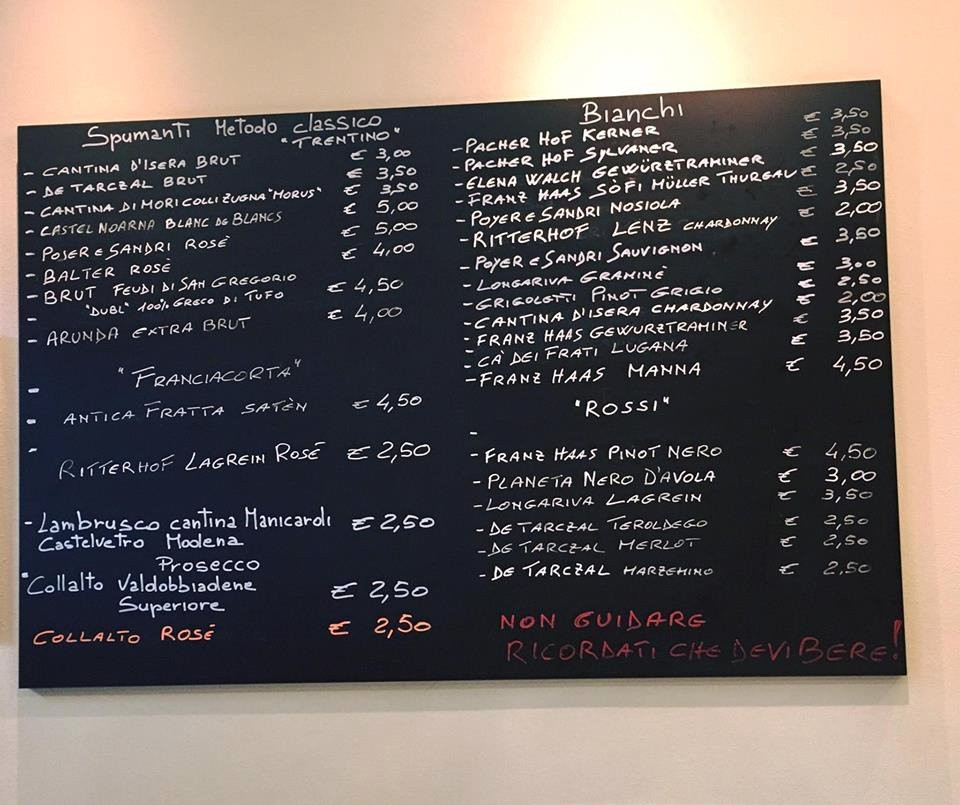 Spumanti Metodo classico
"TRENTINO"
- CANTINA D'ISERA BRUT € 3,00
- DE TARCZAL BRUT € 3,50
- CANTINA DI MORI COLLI ZUGNA "MORUS" € 3,50
- CASTEL NOARNA BLANC DE BLANCS € 5,00
- POJER E SANDRI ROSÈ € 5,00
- BALTER ROSÈ € 4,00
- BRUT FEUDI DI SAN GREGORIO
"DUBL" 100% GRECO DI TUFO € 4,50
- ARUNDA EXTRA BRUT € 4,00
"FRANCIACORTA"
- ANTICA FRATTA SATÈN € 4,50
- RITTERHOF LAGREIN ROSÉ € 2,50
- Lambrusco cantina Manicardi € 2,50
Castelvetro Modena
Prosecco
"Collalto Valdobbiadene € 2,50
Superiore
COLLALTO ROSÉ € 2,50
Bianchi
- PACHER HOF KERNER € 3,50
- PACHER HOF SYLVANER € 3,50
- ELENA WALCH GEWÜRZTRAMINER € 3,50
- FRANZ HAAS SÒFI MÜLLER THURGAU € 2,50
- POYER E SANDRI NOSIOLA € 3,50
- RITTERHOF LENZ CHARDONNAY € 2,00
- POYER E SANDRI SAUVIGNON € 3,50
- LONGARIVA GRAMINÈ € 3,00
- GRIGOLETTI PINOT GRIGIO € 2,50
- CANTINA D'ISERA CHARDONNAY € 2,00
- FRANZ HAAS GEWURZTRAMINER € 3,50
- CA' DEI FRATI LUGANA € 3,50
- FRANZ HAAS MANNA € 4,50
"ROSSI"
- FRANZ HAAS PINOT NERO € 4,50
- PLANETA NERO D'AVOLA € 3,00
- LONGARIVA LAGREIN € 3,50
- DE TARCZAL TEROLDEGO € 2,50
- DE TARCZAL MERLOT € 2,50
- DE TARCZAL MARZEMINO € 2,50
NON GUIDARE
RICORDATI CHE DEVI BERE!